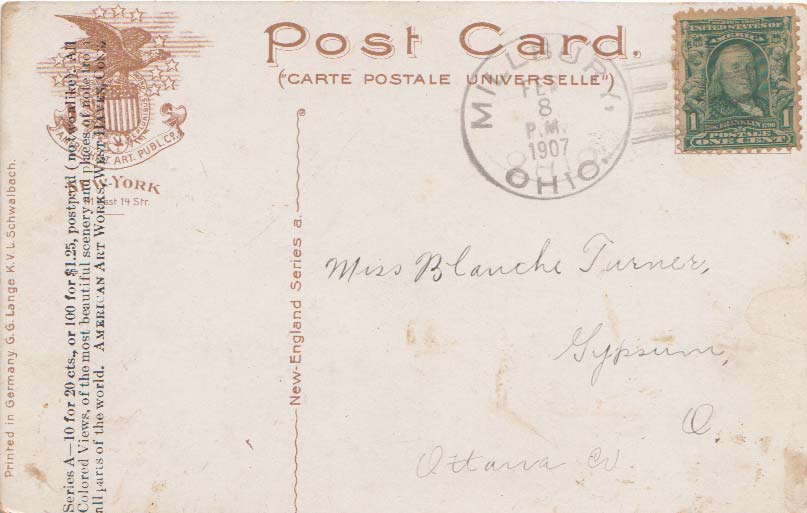 Post Card.
("CARTE POSTALE UNIVERSELLE")
AMERICAN ART. PUBL. CO.
NEW-YORK
East 14 Str.
MILLBURY,
FEB
8
P.M.
1907
OHIO.
UNITED STATES OF
AMERICA
FRANKLIN
1 1
POSTAGE
ONE CENT
Miss Blanche Turner,
Gypsum,
O.
Ottawa Co.
New-England Series a.
Series A—10 for 20 cts., or 100 for $1.25, postpaid (no two alike). All
Colored Views, of the most beautiful scenery and places of note from
all parts of the world. AMERICAN ART WORKS, WEST HAVEN, CONN.
Printed in Germany. G.G. Lange K.V.L. Schwalbach.